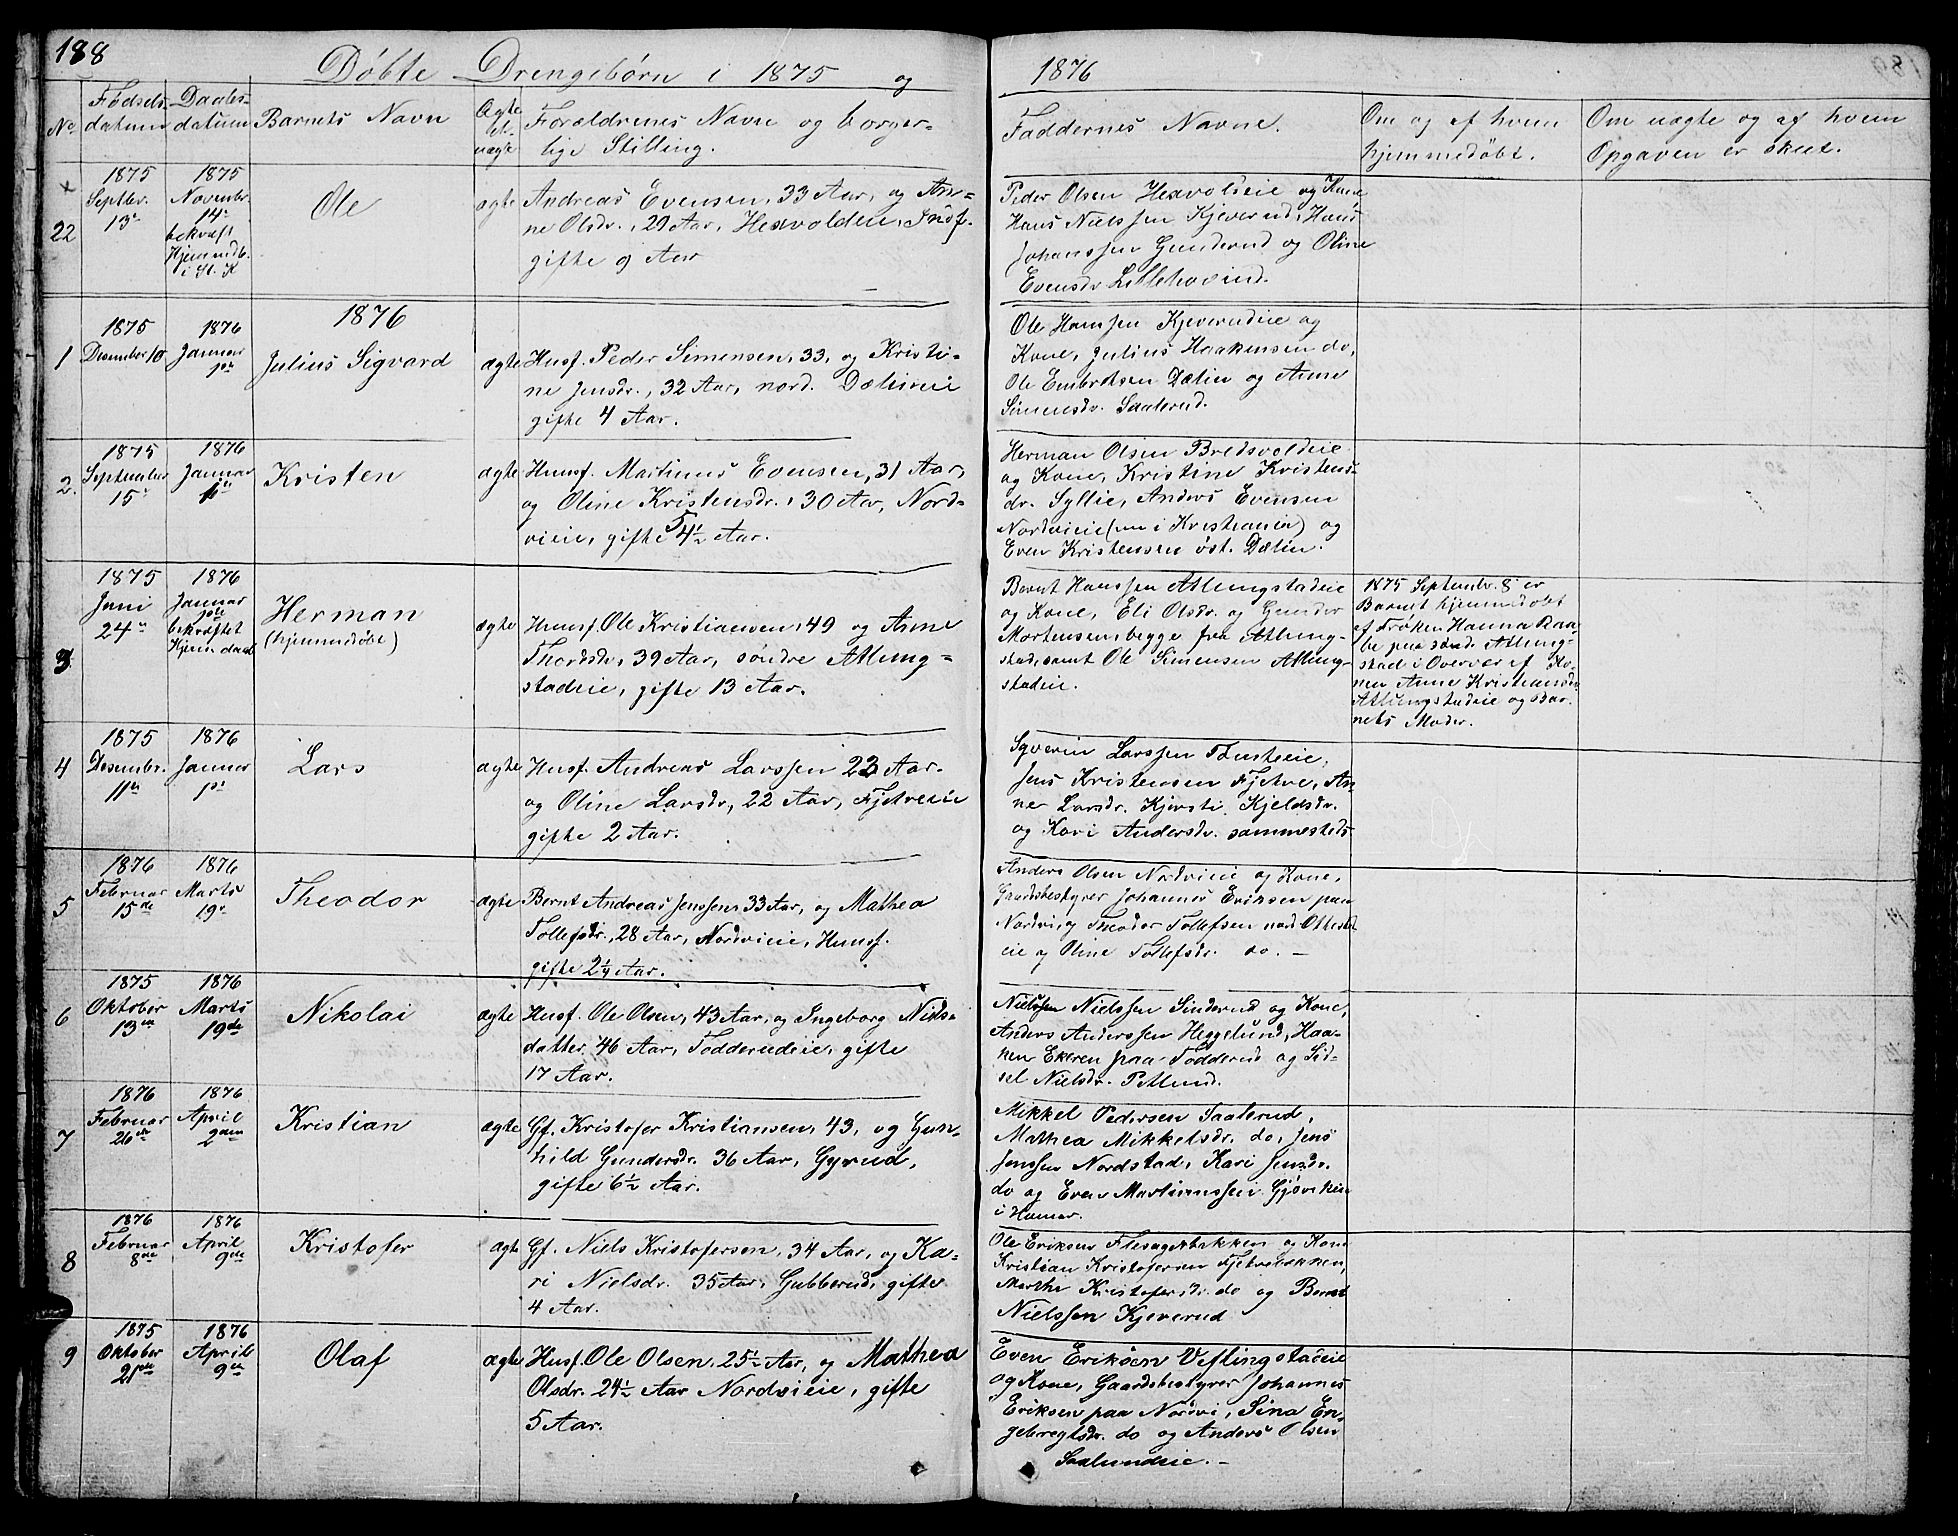 188
Døbte Drengebørn i 1875 og 1876
No
Fødsels-
datum
Daabs-
datum
Barnets Navn
Ægte
el.
uægte
Forældrenes Navne og borger-
lige Stilling.
Faddernes Navne.
Om og af hvem
hjemmedøbt.
Om uægte og af hvem
Opgaven er skeet.
22
1875
Septbr.
13de
1875
Novembr.
14de
bekræft
Hjemmdb.
i St. K
Ole
ægte
Andreas Evensen, 33 Aar, og An-
ne Olsdr., 29 Aar, Hexvoldeie, Inds.
gifte 9 Aar
Peder Olsen Hexvoldseie og Kone
Hans Nielssen Kjeverud, Hans
Johanssen Gunderud og Oline
Evensdr. Lillehovind.
1876
1
1875
Desember 10
1876
Januar
1ste
Julius Sigvard
ægte
Husf. Peder Simensen, 33, og Kristi-
ne Jensdr., 32 Aar, nord. Dælineie
gifte 4 Aar.
Ole Hanssen Kjeverudeie og
Kone, Julius Haakensen do,
Ole Embretsen Dælin og Anne
Simensdr. Saalerud.
2.
1875
September
15de
1876
Januar
1ste
Kristen
ægte
Huusf. Martinus Evensen, 31 Aar,
og Oline Kristensdr., 30 Aar, Nord-
vieie, gifte 5 4½ Aar.
Herman Olsen Bredsvoldeie
og Kone, Kristine Kristens-
dr. Syllie, Anders Evensen
Nordvieie (nu i Kristiania) og
Even Kristensen øst. Dælin.
3
1875
Juni
24de
1876
Januar
1ste
bekræftet
Hjemmedaab
Herman
(hjemmedøbt)
ægte
Huusf. Ole Kristiansen, 49 og Anne
Thordsdr., 39 Aar, søndre Atlung-
stadeie, gifte 13 Aar.
Bernt Hanssen Atlungstadeie
og Kone, Eli Olsdr. og Gunder
Mortensen, begge fra Atlung-
stad, samt Ole Simensen Atlung-
stadeie.
1875 Septembr. 8de er
Barnet hjemmedøbt
af Frøken Hanna Raa-
be paa sønd. Atlung-
stad i Overvær af Ko-
nen Anne Kristiansdr.
Atlungstadeie og Bar-
nets Moder.
4
1875
Desembr.
11te
1876
Januar
1ste
Lars
ægte
Husf. Andreas Larssen 23 Aar.
og Oline Larsdr., 22 Aar, Fjetreeie
gifte 2 Aar.
Syverin Larssen
Jens Kristensen Fjetre, An-
ne Larsdr. Kjersti Kjeldsdr.
og Kari Andersdr. sammesteds
5
1876
Februar
15de
1876
Marts
19de
Theodor
ægte
Bernt Andreas Jenssen, 33 Aar, og Mathea
Tollefsdr., 28 Aar, Nordvieie, Huusf.
gifte 2¼ Aar.
Anders Olsen Nordvieie og Kone,
Gaardsbestyrer Johannes Eriksen paa
Nordvi, og Theodor Tollefsen nord Ottestad
eie og Oline Tollefsdr. do. —
6
1875
Oktober
13de
1876
Marts
19de
Nikolai
ægte
Husf. Ole Olsen, 43 Aar, og Ingeborg Niels-
datter 46 Aar, Fodderudeie, gifte
17 Aar.
Nielssen Sinderud og Kone,
Anders Anderssen Heggelund, Haa-
ken Ekeren paa Fodderud og Sid-
sel Nielsdr. Petlund.
7
1876
Februar
26de
1876
April
2den
Kristian
ægte
Gf. Kristofer Kristiansen, 43, og Gun-
hild Gundersdr. 36 Aar, Gyrud,
gifte 6½ Aar.
Mikkel Pedersen Saalerud,
Mathea Mikkelsdr. do, Jens
Jenssen Nordstad, Kari Jensdr.
do og Even Martinussen Gjøviken
i Hamar.
8
1876
Februar
8de
1876
April
9de
Kristofer
ægte
Gf. Niels Kristofersen, 34 Aar, og Ka-
ri Nielsdr. 35 Aar, Gubberud, gifte
4 Aar.
Ole Eriksen Flesagerbakken og Kone
Kristian Kristofersen Fjetrebakken,
Marthe Kristofersdr. do og Bernt
Nielssen Kjeverud
9
1875
Oktober
21de
1876
April
9de
Olaf
ægte
Husf. Ole Olsen, 25½ Aar, og Mathea
Olsdr. 24½ Aar Nordvieie, gifte
5 Aar.
Even Eriksen Veflingstadeie
og Kone, Gaardsbestyrer Johannes
Eriksen paa Nordvi, Sina En-
gebregtsdr. do og Anders Olsen
Saalundeie. —